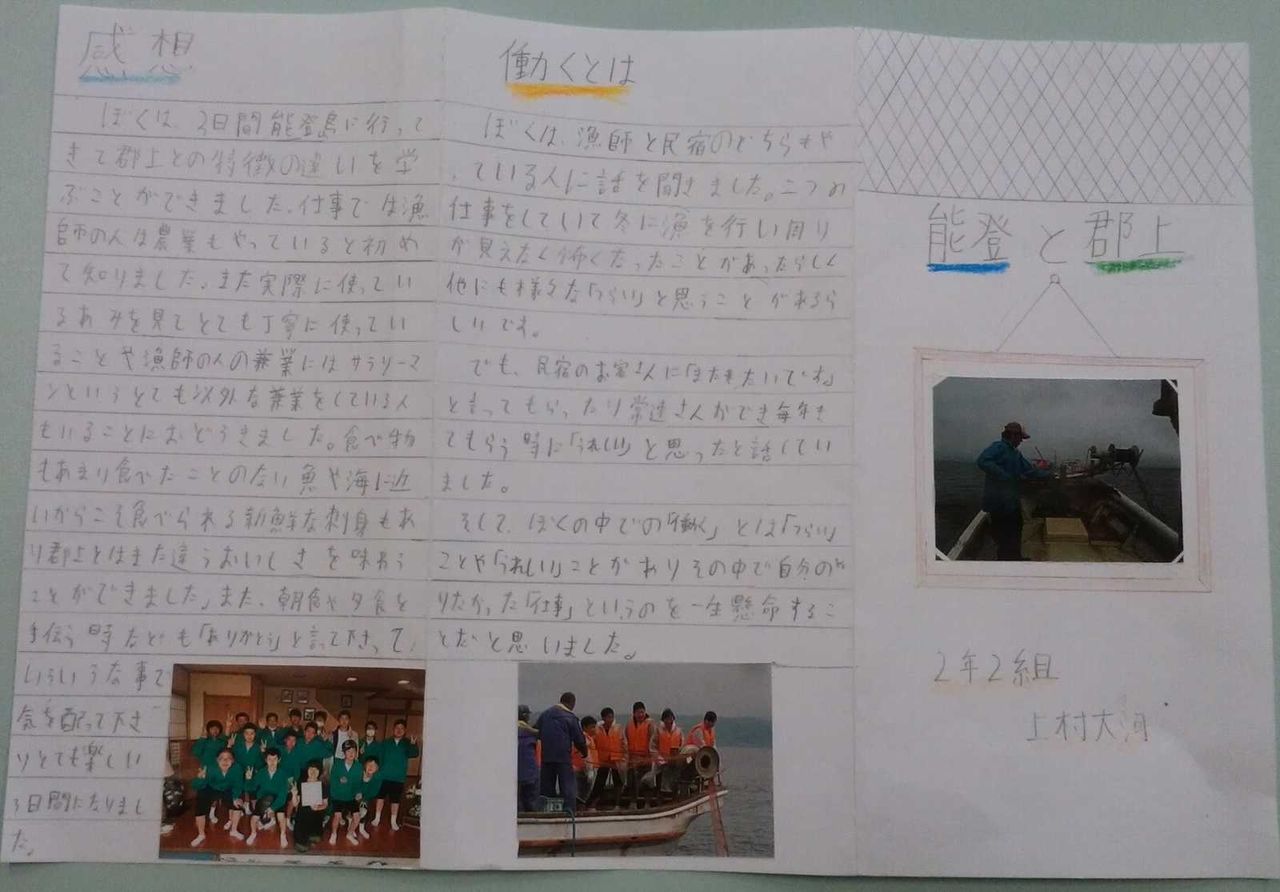 能登と郡上
2年2組
上村大河
働くとは
ぼくは、漁師と民宿のどちらもや
っている人に話を聞きました。二つの
仕事をしていて冬に漁を行い周り
が見えなく怖くなったことがあったらしく
他にも様々な「つらい」と思うことがあるら
しいです。
でも、民宿のお客さんに「またきたいです。」
と言ってもらったり常連さんができ毎年き
てもらう時に「うれしい」と思ったと話してい
ました。
そして、ぼくの中での「働く」とは「つらい」
ことや「うれしい」ことがありその中で自分のや
りたかった「仕事」というのを一生懸命するこ
とだと思いました。
感想
ぼくは、3日間能登島に行って
きて郡上との特徴の違いを学
ぶことができました。仕事では漁
師の人は農業もやっていると初め
て知りました。また実際に使ってい
るあみを見てとても丁寧に使ってい
ることや漁師の人の兼業にはサラリーマ
ンというとても以外な兼業をしている人
もいることにおどろきました。食べ物
もあまり食べたことのない魚や海に近
いからこそ食べられる新鮮な刺身もあ
り郡上とはまた違うおいしさを味わう
ことができました。また、朝食や夕食を
手伝う時なども「ありがとう」と言って下さって、
いろいろな事で
気を配って下さ
りとても楽しい
3日間になりまし
た。